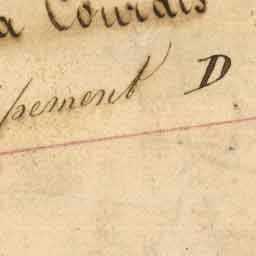 a Courdis
pement D